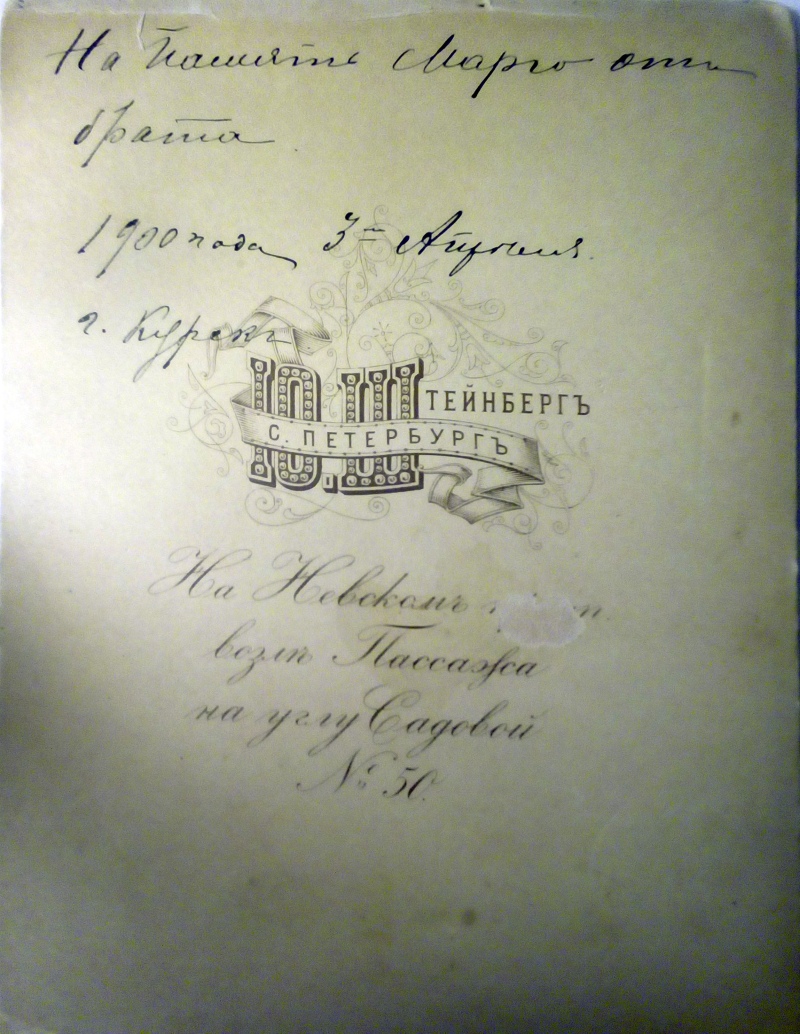 На Память Марго отъ
брата
1900 года 3го Апреля.
г. Курскъ
Ю. ШТЕЙНБЕРГЪ
С. ПЕТЕРБУРГЪ
На Невскомъ
возлѣ Пассажа
на углу Садовой
№ 50.